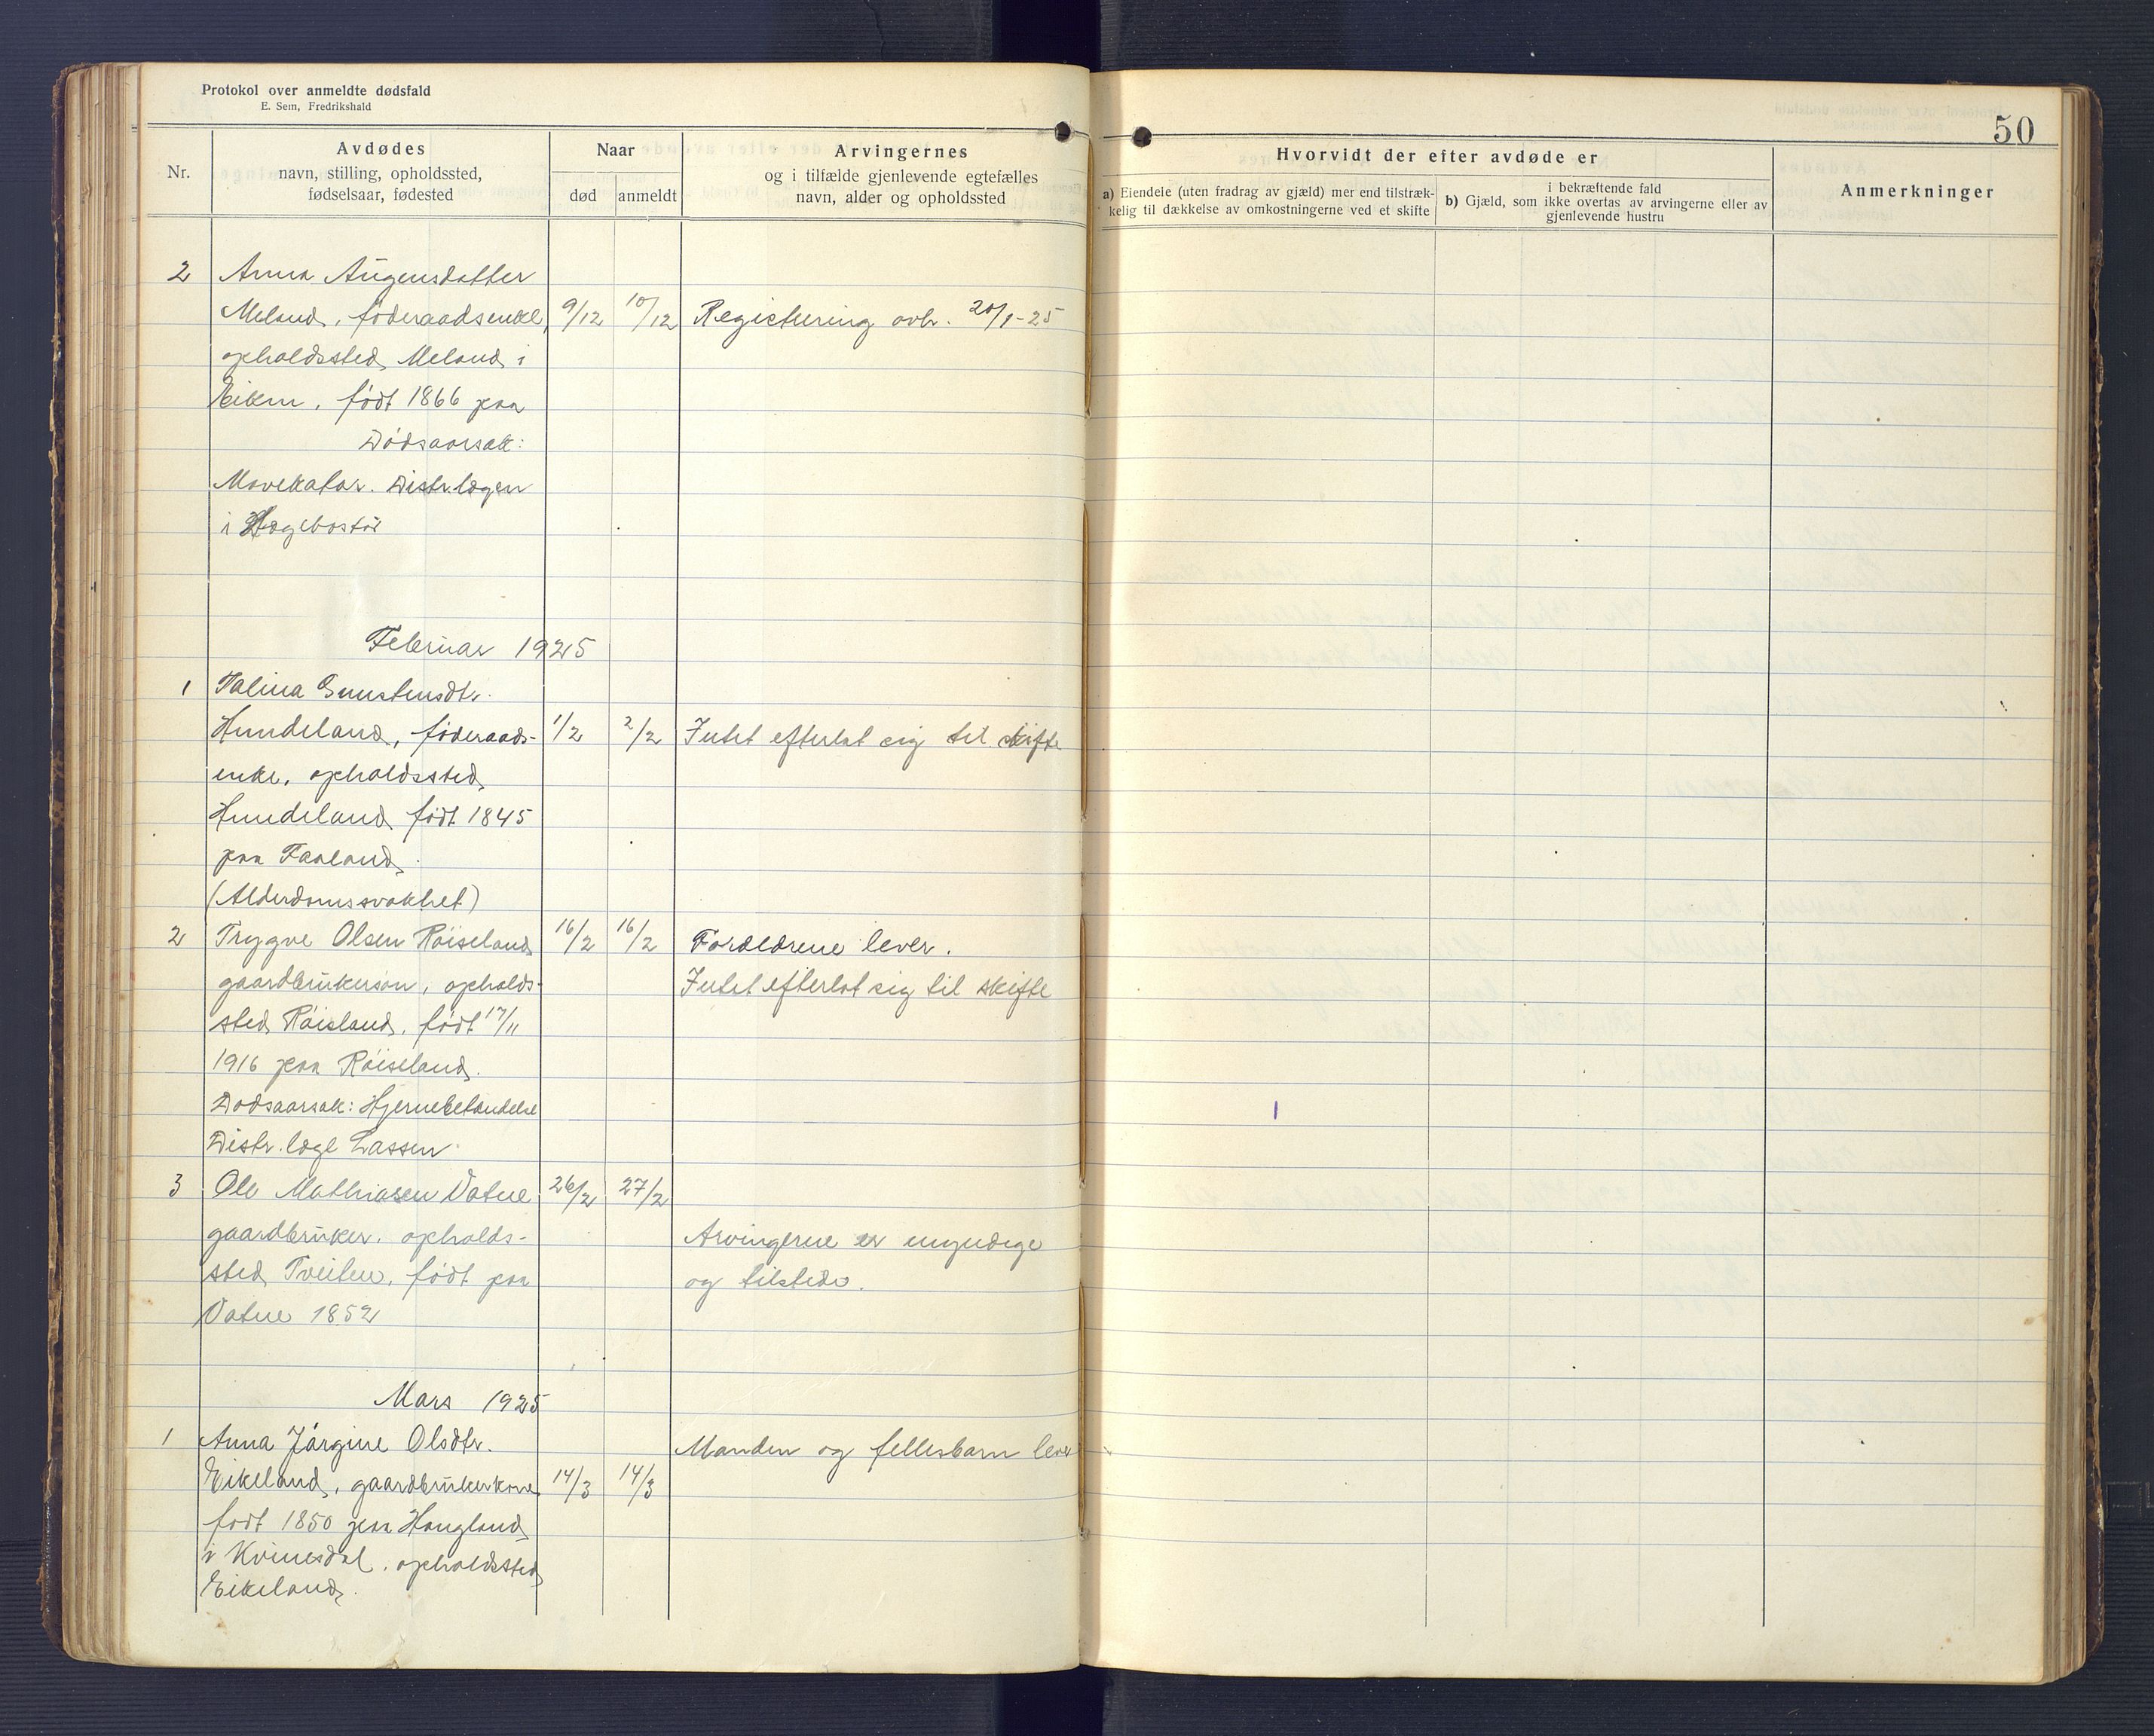 Protokol over anmeldte dødsfald
E. Sem, Fredrikshald
50
Nr.
Avdødes
navn, stilling, opholdssted,
fødselsaar, fødested
Naar
død
anmeldt
Arvingernes
og i tilfælde gjenlevende egtefælles
navn, alder og opholdssted
Hvorvidt der efter avdøde er
a) Eiendele (uten fradrag av gjæld) mer end tilstræk-
kelig til dækkelse av omkostningerne ved et skifte
i bekræftende fald
b) Gjæld, som ikke overtas av arvingerne eller av
gjenlevende hustru
Anmerkninger
2 Anna Augensdatter
Meland, föderaadsenke, 9/12 10/12 Registrering avh. 20/1-25
opholdssted Meland i
Eiken, födt 1866 paa
Dödsaarsak:
Mavekatar. Distr.lægen
i Hægebostö
Februar 1925
1 Talina Gunstensdtr.
Hundeland, föderaads- 1/2 2/2 Intet efterlat sig til skifte
enke, opholdssted
Hundeland födt 1845
paa Faaland
(Alderdomssvakhet)
2 Trygve Olsen Röiseland 16/2 16/2 Forældrene lever.
gaardbrukersön, opholds- Intet efterlat sig til skifte
sted Röisland, födt 17/11
1916 paa Röiseland.
Dödsaarsak: Hjernebetændelse
Distr. læge Lassen
3 Ole Mathiasen Vatne 26/2 27/2
gaardbruker, opholds- Arvingerne er myndige
sted Tveiten, födt paa og tilstede.
Vatne 1852
Mars 1925
1 Anna Jörgine Olsdtr. Manden og fellesbarn lever
Eikeland, gaardbrukerkone 14/3 14/3
födt 1850 paa Haugland
i Kvinesdal, opholdssted
Eikeland.